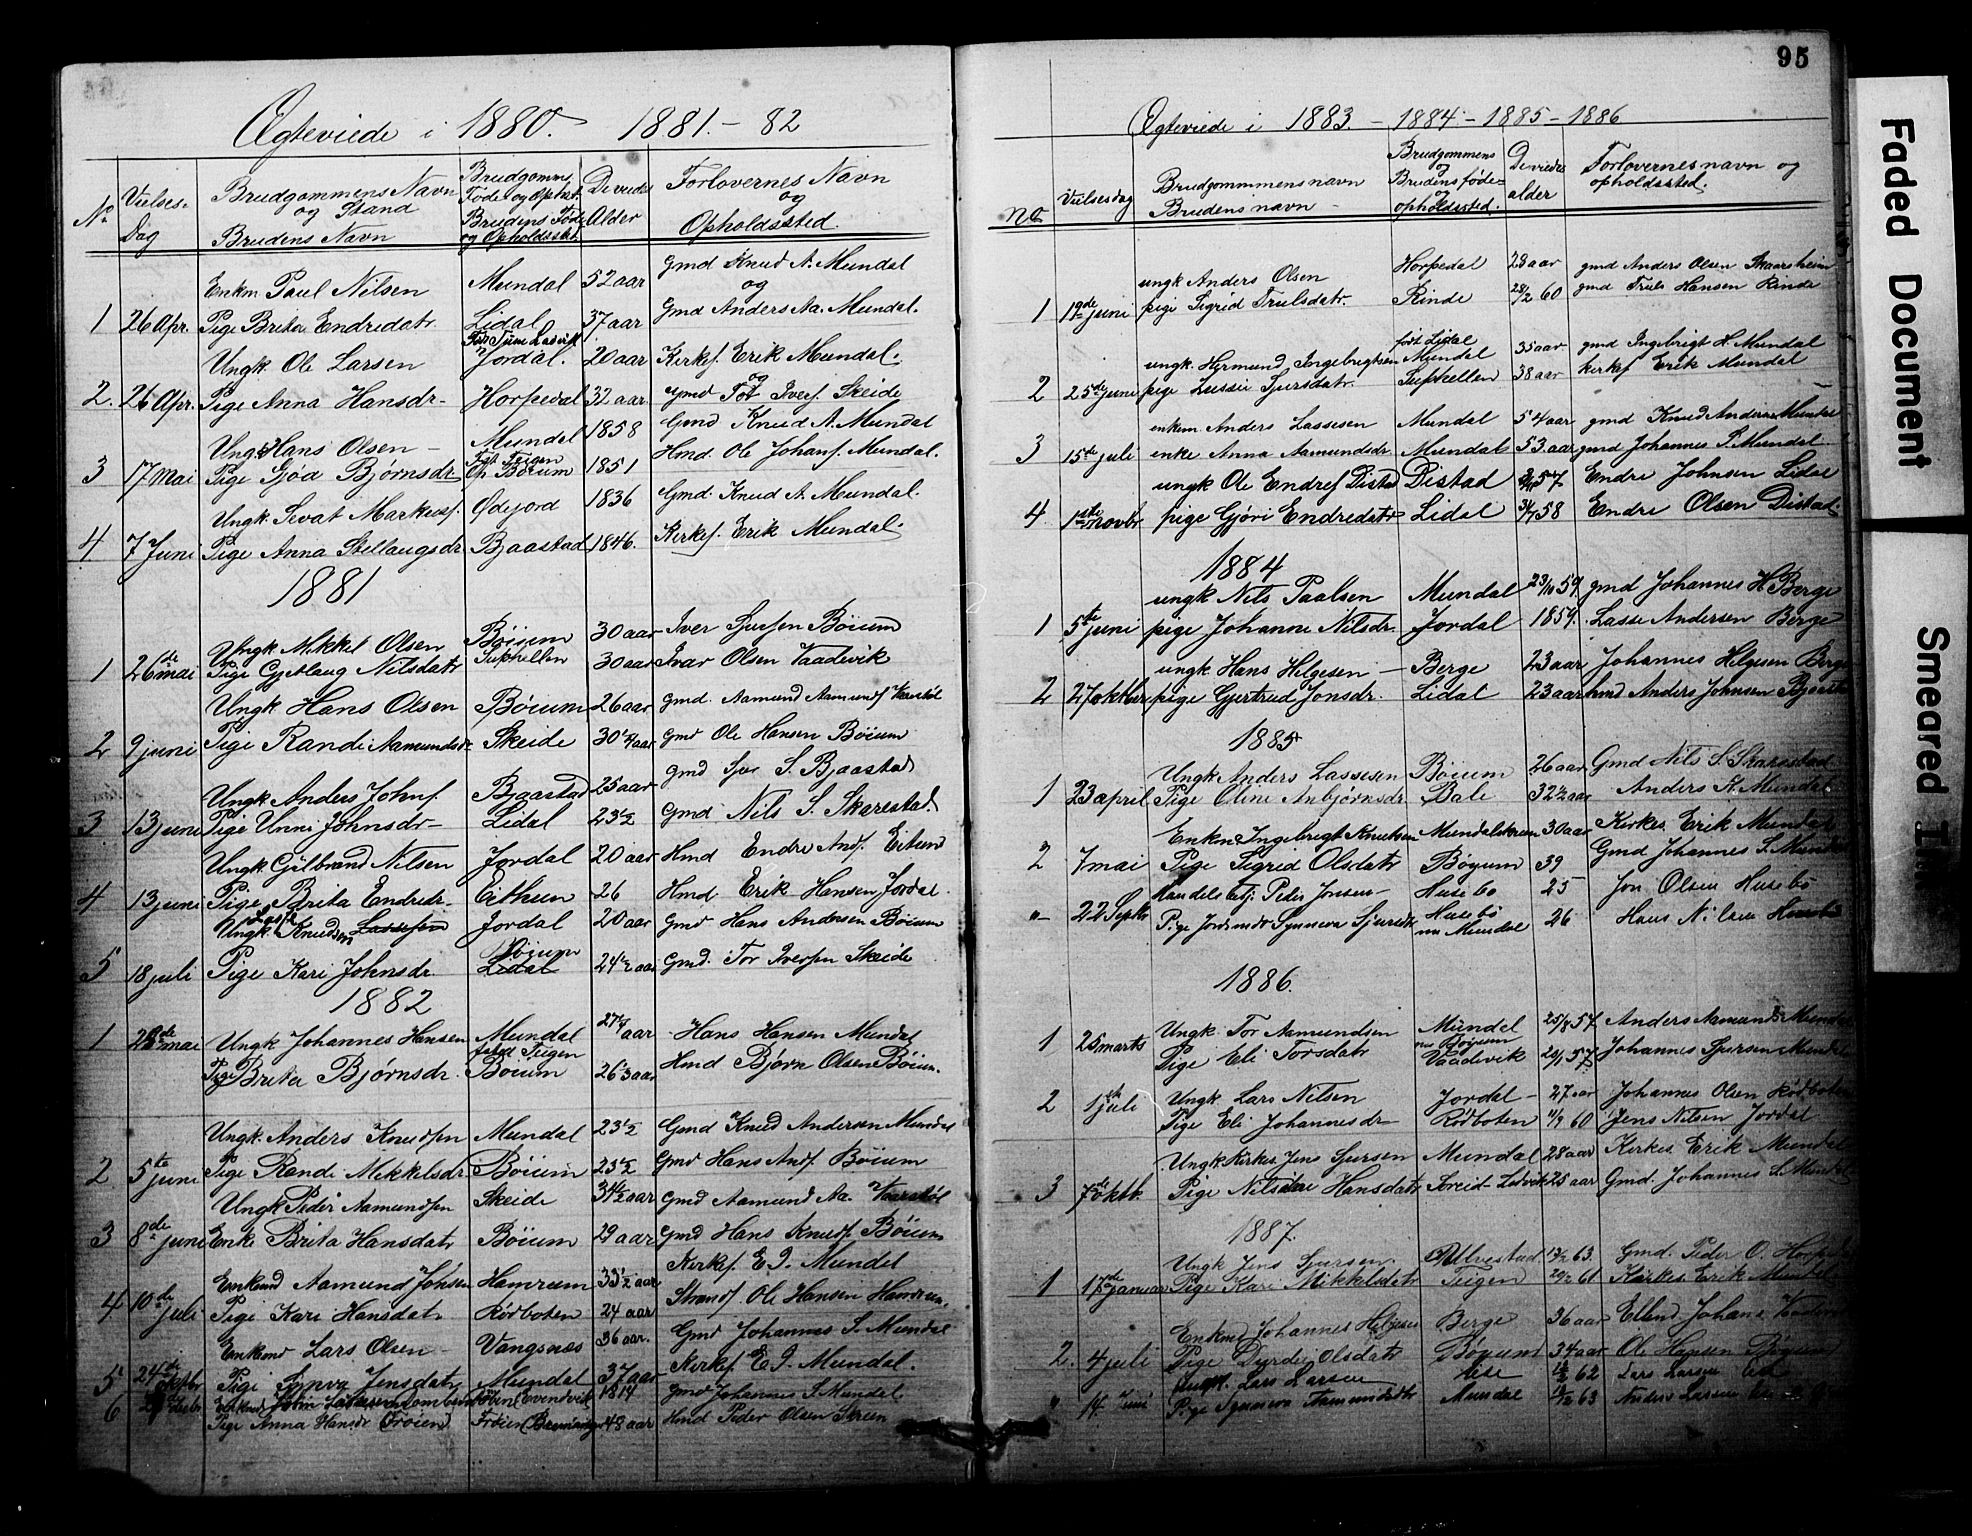 Ægteviede i 1880. 1881. - 82
No
Vielses-Dag
Brudgommens Navn og Stand
Brudens Navn
Brudgomms Føde og Ophst.
Brudens Føde og Opholdsst.
De viedes Alder
Forlovernes Navn og Opholdssted.
Enkm Paul Nilsen Mundal 52 aar Gmd Knud A. Mundal og
1 26 Apr. Pige Brita Endredatr. Lidal 37 aar Gmd Anders Aa. Mundal.
Ungk. Ole Larsen Jordal. 20 aar Kirkes. Erik Mundal. og
2. 26 Apr. Pige Anna Hansdr- Horpedal 32 aar. Gmd Tor Ivers. Skeide
Ungk Hans Olsen - Mundal 1858 Gmd Knud A. Mundal
3 17 Mai Pige Gjøa Bjørnsdr Fdt. Teigen Op. Bøium 1851 Hmd. Ole Johans. Mundal.
Ungk. Sevat Markuss. Ødejord 1836 Gmd. Knud A. Mundal.
4 7 Juni Pige Anna Stellaugsdr. Bjaastad 1846. Kirkes. Erik Mundal.
1881
Ungk Mikkel Olsen Bøium 30 aar Iver Sjursen Bøium
1 26de mai Pige Gjetlaug Nilsdatr Suphellen 30 aar Ivar Olsen Vaadevik
Ungk Hans Olsen Bøium 26 aar gmd. Aamund Aamunds.
2 9 juni Pige Randi Aamundsdr. Skeide 30 aar Gmd Ole Hansen Bøium
Ungk Anders Johns. Bjaastad 25 aar gmd S. Bjaastad
3 13 juni Pige Unni Johnsdr- Lidal 23½ Gmd Nils S. Skarestad.
Ungk Gulbrand Nilsen Jordal 20 aar Hmd Endre Ands. Eitun
4 13 juni Pige Brita Endredr- Eithun 26 Hmd Erik Hansen Jordal
Ungk. Lasse Knudsen Lassesen Jordal 20 aar Gmd Hans Andersen Bøium
5 18 juli Pige Kari Johnsdr. Bøium Lidal 24½ aar Gmd. Tor Iversen Skeide
1882
1 28de mai Ungk Johannes Hansen Mundal 27 aar Hans Hansen Mundal
Pige Brita Bjørnsdr. født Teigen Bøium 26 aar Hmd Bjørn Olsen Bøium.
Ungk. Anders Knudsen Mundal 23½ Gmd Knud Andersen Mundal
2 5te juni Pige Randi Mikkelsdr. Bøium 23½ Gmd Hans Ands. Bøium
Ungk Peder Aamundsen Skeide 34½ aar Gmd Aamund Aa.
3 8de juni Enke Brita Hansdatr Bøium 29 aar Gmd Hans Knuds. Bøium
Enkemd Aamund Johnsen Hamrum 33½ aar Kirkes. E. I. Mundal
4 10de juli Pige Kari Hansdatr Rødboten 24 aar Strands. Ole Hansen Hamrum.
Enkemd Lars Olsen - Vangsnæs 36 aar. Gmd Johannes S. Mundal
5 24de Septbr Pige Synva Jensdatr Mundal 37 aar Kirkes. E. I. Mundal.
6 1814 Gmd Johannes S. Mundal
Pige Anna Hansdr Frøien 48 aar Hmd Peder Olsen
95
Ægteviede i 1883. - 1884 - 1885 - 1886
No
Vielsesdag
Brudgommmens navn
Brudens navn -
Brudgommens og Brudens føde- og opholdssted.
De viedes alder
Forlovernes navn og opholdssted.
ungk Anders Olsen Horpedal 23 aar gmd Anders Olsen Skaarsheim
1 17de juni pige Sigrid Trulsdatr. Rinde 28/2 60 gmd Truls Hansen Rinde
ungk. Hermund Ingebrigtsen født Lidal Mundal 35 aar gmd Ingebrigt H. Mundal
2 25de juni pige Lussie Sjursdatr. Suphellen 38 aar kirkes Erik Mundal
enkem Anders Lassesen Mundal 54 aar gmd Knud Anders Mundal
3 15de juli enke Anna Aamundsdr. Mundal 53 aar gmd Johannes P. Mundal
ungk Ole Endres Distad Distad 57 Endre Johnsen Lidal
4 1ste novbr pige Gjøri Endredatr Lidal 58 Endre Olsen Distad.
1884
ungk Nils Paalsen Mundal 23/10 59. gmd Johannes H Berge
1 5te juni pige Johanne Nilsdr. Jordal 1859. Lasse Andersen Berge
ungk Hans Helgesen - Berge 23 aar Johannes Helgesen Berge
2 27 oktbr pige Gjertrud Jonsdr. Lidal 23 aar hmd Anders Johnsen Bjaastad
1885
Ungk Anders Lassesen Bøium 26 aar Gmd Nils S. Skarestad
1 23 april Pige Oline Anbjørnsdr. Bale 32½ aar Anders A. Mundal
Enkm. Ingebrigt Knutsen 30 aar Kirkes. Erik Mundal
2 7 mai Pige Sigrid Olsdatr Bøyum 39 Gmd Johannes S. Mundal
Handelsbetj. Peder Jonsen - Husebø 25 Jon Olsen Husebø
"- 22 Septbr Pige Synneva Sjursdtr Husebø nu Mundal 26 Hans Nilsen
1886.
1 25 marts Ungk. Tor Aamundsen Mundal 25/8 57 Anders Aamunds Mundal
Pige Eli Torsdatr nu Bøyum Vaadevik 57 Johannes Sjursen Mundal
2 1ste juli Ungk. Lars Nilsen Jordal - 27 aar Johannes Olsen Rødboten
Pige Eli Johannesdr Rødboten 11/9 60 Jens Nilsen Jordal
Ungk. Kirkes. Jens Sjursen Mundal 28 aar Kirkes. Erik Mundal
3 7de oktb. Pige Nilsine Hansdatr 25 aar Gmd. Johannes S. Mundal
1887.
Ungk Jens Sjursen Ulvestad 63. Gmd. Peder O.
1 17de januar Pige Kari Mikkelsdatr Teigen 61 Kirkes. Erik Mundal
Enkmd Johannes Helgesen Berge 36 aar
2. 4 juli Pige Durdei Olsdatr Bøyum 34 aar Ole Hansen Bøyum
Ungk. Lars Larsen 62 Lars Larsen
" 14 Juni Pige Synneva Aamundsdtr Mundal 63 Anders Larsen
Faded Document
Smeared Ink